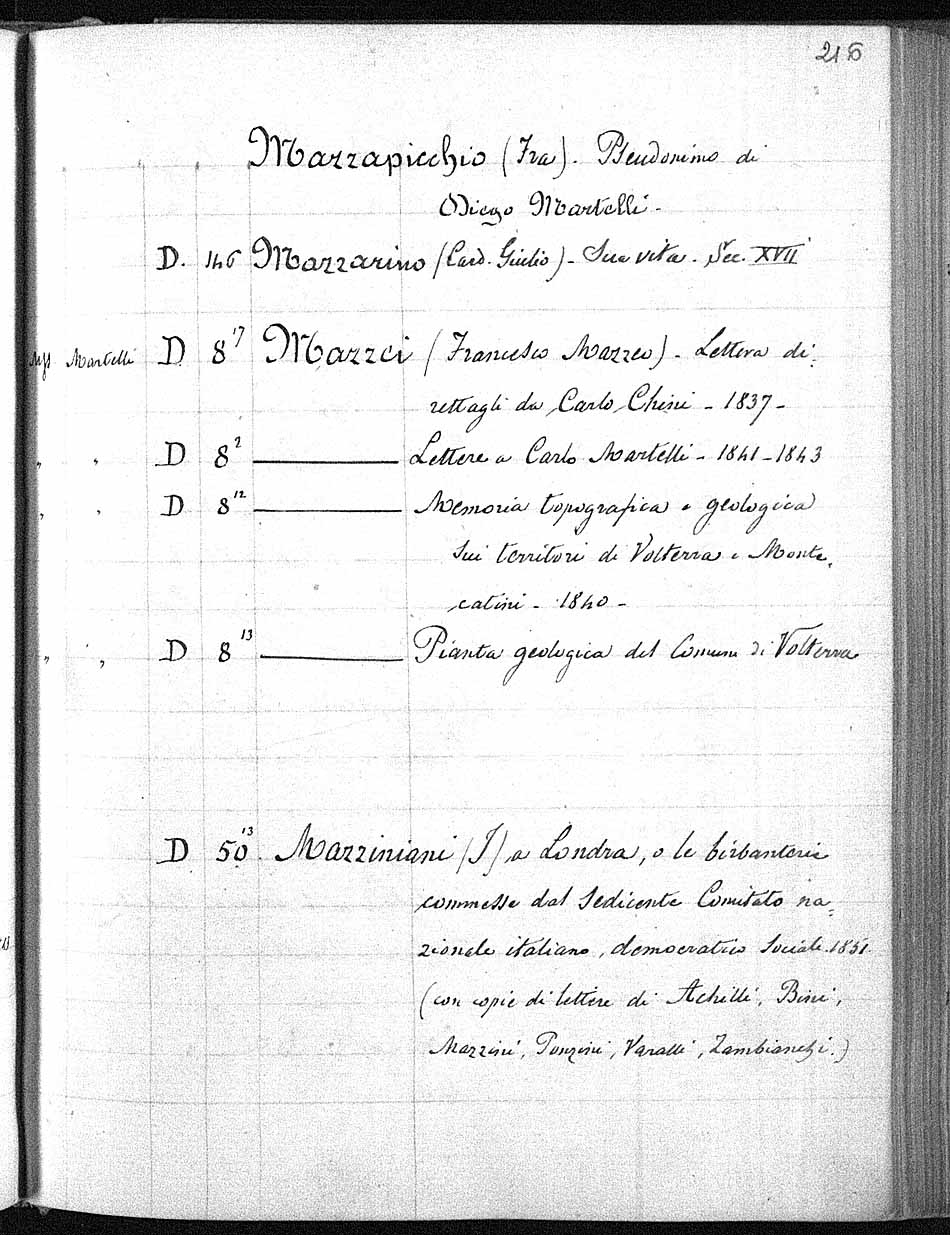 216
Mazzapicchio (Fra). Pseudonimo di
Diego Martelli.
D. 146 Mazzarino (Card. Giulio) - Sua vita. Sec. XVII
Mss Martelli D 8¹⁷ Mazzei (Francesco Mazzeo). Lettera di=
rettagli da Carlo Chini - 1837 -
" " D 8² ——— Lettere a Carlo Martelli - 1841 - 1843
" " D 8¹² ——— Memoria topografica e geologica
sui territori di Volterra e Monte=
catini - 1840 -
" " D 8¹³ ——— Pianta geologica del Comune di Volterra
D 50¹³ Mazziniani (I) a Londra, o le birbanterie
commesse dal sedicente Comitato na=
zionale italiano, democratico sociale. 1851.
(con copie di lettere di Achilli, Bini,
Mazzini, Ponzini, Varalli, Zambianchi.)